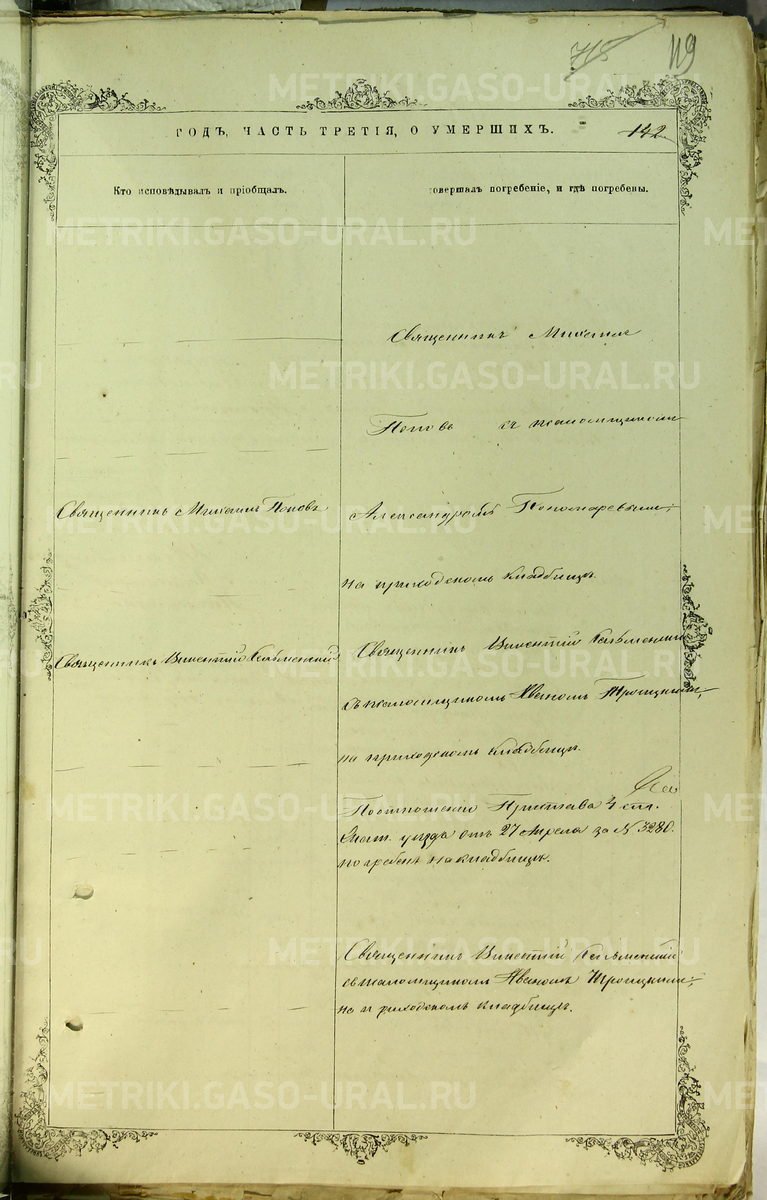 715
119
ГОДЪ, ЧАСТЬ ТРЕТІЯ, О УМЕРШИХЪ.
142
Кто исповѣдывалъ и пріобщалъ.
совершалъ погребеніе, и гдѣ погребены.
Священникъ Михаилъ
Поповъ съ псаломщикомъ
Священникъ Михаилъ Поповъ
Александромъ Пономаревымъ,
на приходскомъ кладбищѣ.
Священникъ Викентій
Священникъ Викентій
съ псаломщикомъ Иваномъ Троицкимъ,
на приходскомъ кладбищѣ.
По отношенію Пристава 4 стан.
уѣзда отъ 27 Апрѣля за N 3280.
погребенъ на кладбищѣ.
Священникъ Викентій
съ псаломщикомъ Иваномъ Троицкимъ,
на приходскомъ кладбищѣ.
METRIKI.GASO-URAL.RU